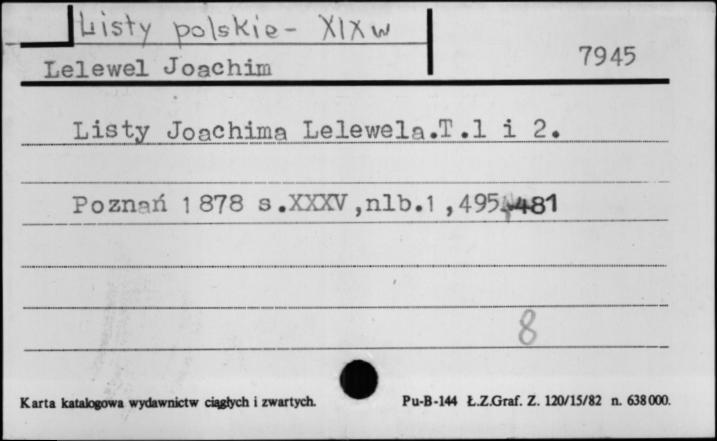 Listy polskie - XIX w
Lelewel Joachim
7945
Listy Joachima Lelewela.T.1 i 2.
Poznań 1878 s.XXXV,nlb.1,495,481
8
Karta katalogowa wydawnictw ciągłych i zwartych.
Pu-B-144 Ł.Z.Graf. Z. 120/15/82 n. 638000.